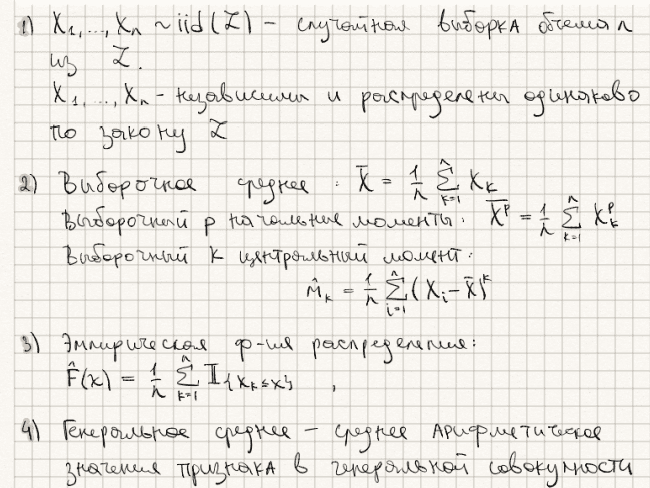 1) X₁, ..., Xₙ ~ iid(ℒ) - случайная выборка объема n
из ℒ.
X₁, ..., Xₙ - независимы и распределены одинаково
по закону ℒ
2) Выборочное среднее: X̄ = 1/n ∑ₖ₌₁ⁿ Xₖ
Выборочный p начальные моменты: X̄ᵖ = 1/n ∑ₖ₌₁ⁿ Xₖᵖ
Выборочный k центральный момент:
m̂ₖ = 1/n ∑ᵢ₌₁ⁿ (Xᵢ - X̄)ᵏ
3) Эмпирическая ф-ия распределения:
F̂(x) = 1/n ∑ₖ₌₁ⁿ 𝕀{Xₖ ≤ x} ,
4) Генеральное среднее - среднее арифметическое
значения признака в генеральной совокупности